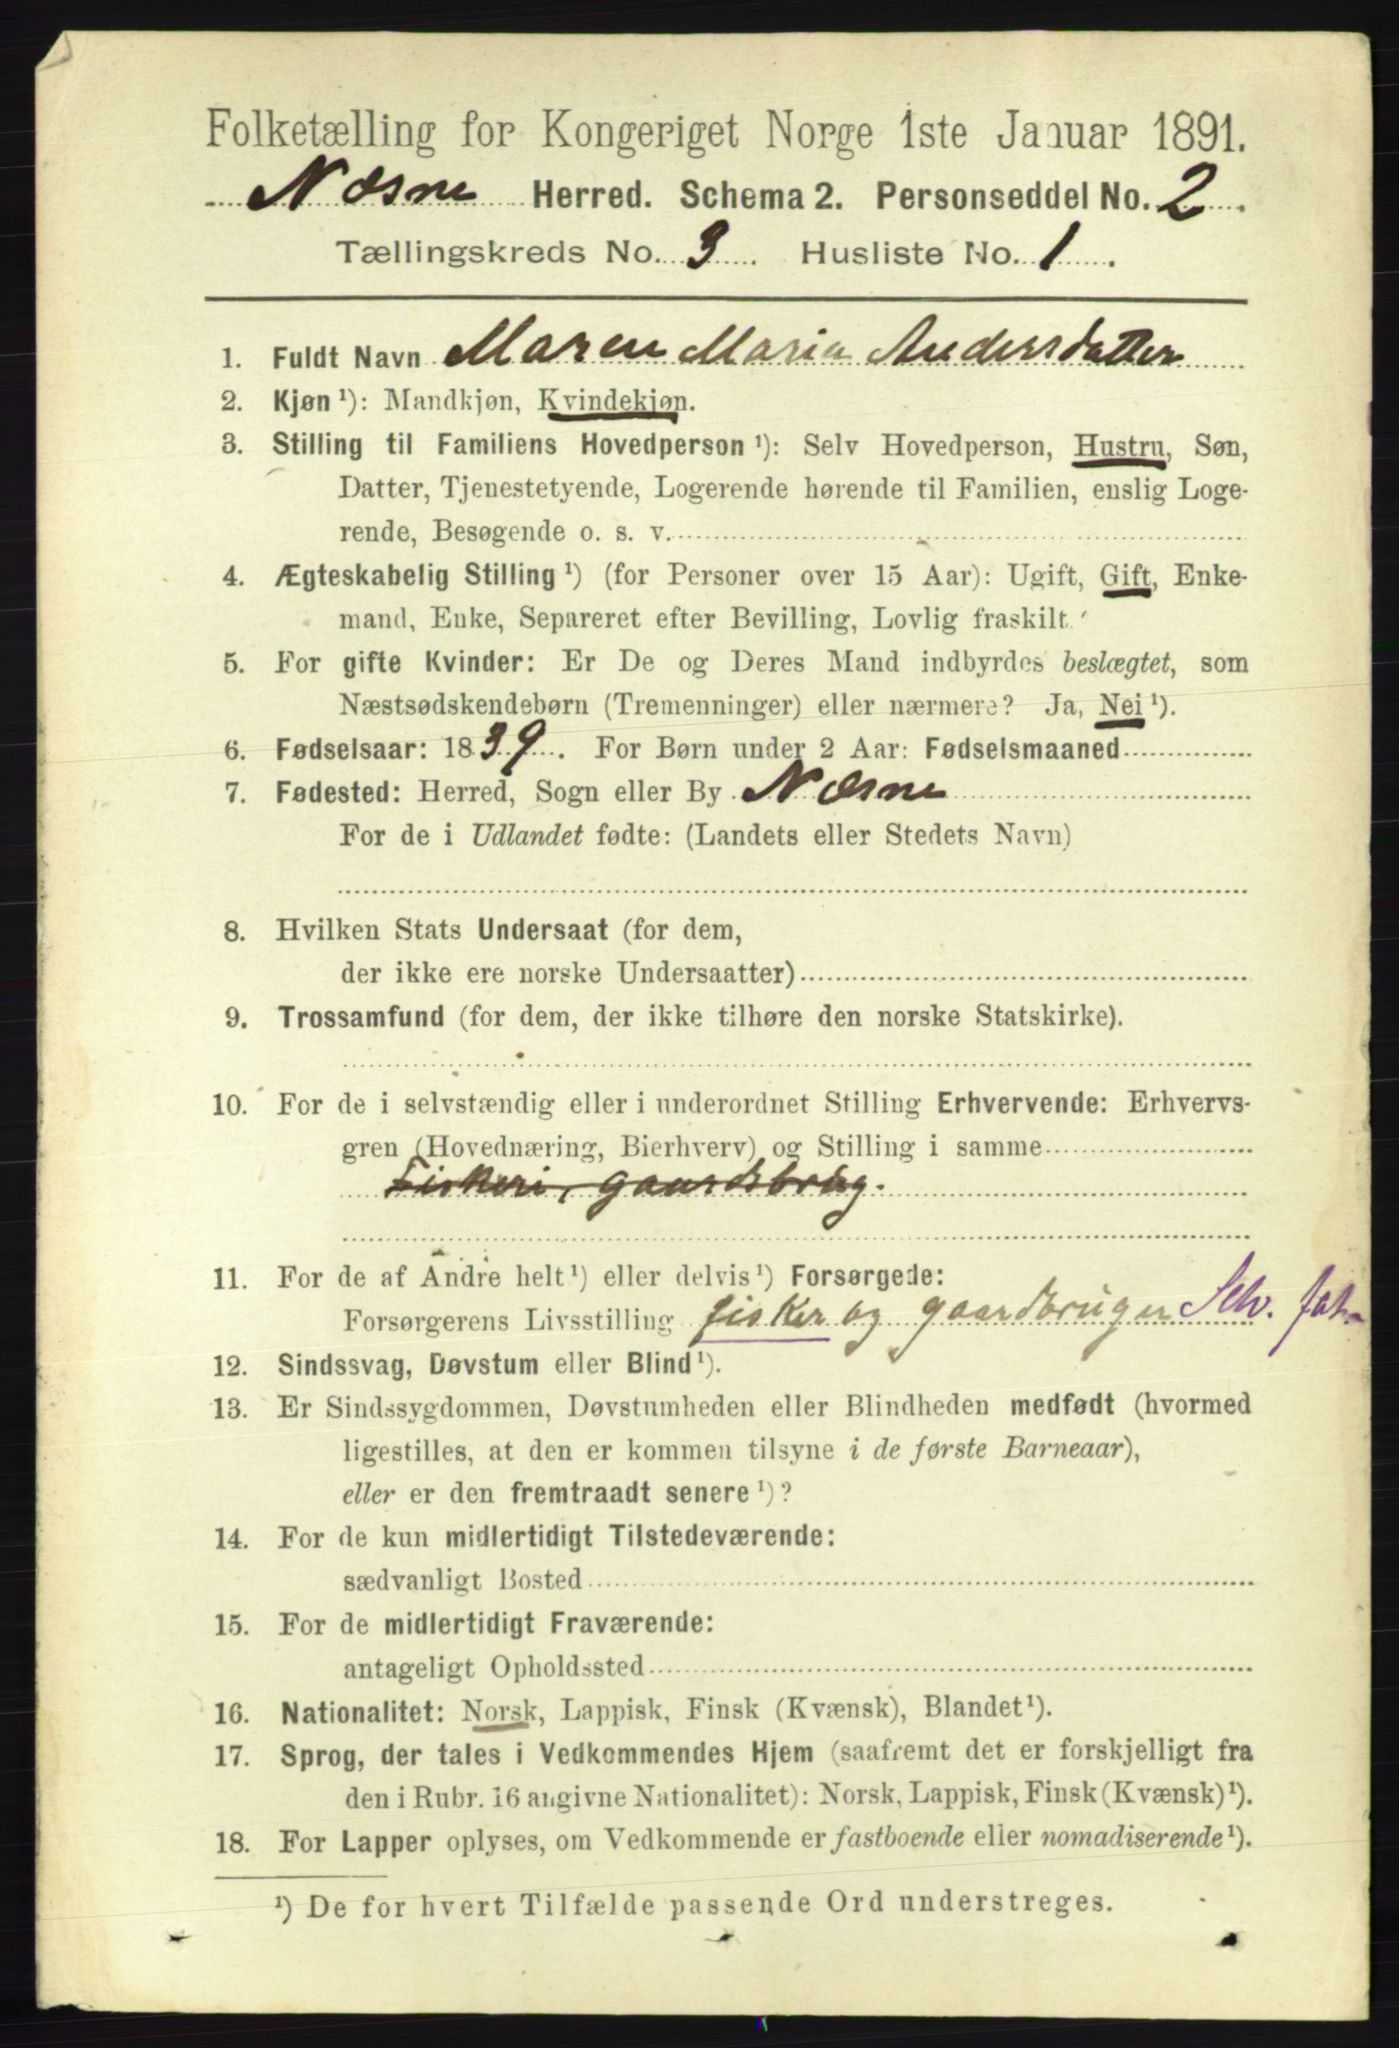 Folketælling for Kongeriget Norge 1ste Januar 1891.
Næsne Herred. Schema 2. Personseddel No. 2.
Tællingskreds No. 3. Husliste No. 1.
1. Fuldt Navn Maren Maria Andersdatter
2. Kjøn ¹): Mandkjøn, Kvindekjøn.
3. Stilling til Familiens Hovedperson ¹): Selv Hovedperson, Hustru, Søn,
Datter, Tjenestetyende, Logerende hørende til Familien, enslig Loge-
rende, Besøgende o. s. v.
4. Ægteskabelig Stilling ¹) (for Personer over 15 Aar): Ugift, Gift, Enke-
mand, Enke, Separeret efter Bevilling, Lovlig fraskilt.
5. For gifte Kvinder: Er De og Deres Mand indbyrdes beslægtet, som
Næstsødskendebørn (Tremenninger) eller nærmere? Ja, Nei ¹).
6. Fødselsaar: 1839. For Børn under 2 Aar: Fødselsmaaned
7. Fødested: Herred, Sogn eller By Næsne
For de i Udlandet fødte: (Landets eller Stedets Navn)
8. Hvilken Stats Undersaat (for dem,
der ikke ere norske Undersaatter)
9. Trossamfund (for dem, der ikke tilhøre den norske Statskirke).
10. For de i selvstændig eller i underordnet Stilling Erhvervende: Erhvervs-
gren (Hovednæring, Bierhverv) og Stilling i samme
Fiskeri, gaardsbrug.
11. For de af Andre helt ¹) eller delvis ¹) Forsørgede:
Forsørgerens Livsstilling fisker og gaardbruger Selv.
12. Sindssvag, Døvstum eller Blind ¹).
13. Er Sindssygdommen, Døvstumheden eller Blindheden medfødt (hvormed
ligestilles, at den er kommen tilsyne i de første Barneaar),
eller er den fremtraadt senere ¹)?
14. For de kun midlertidigt Tilstedeværende:
sædvanligt Bosted
15. For de midlertidigt Fraværende:
antageligt Opholdssted
16. Nationalitet: Norsk, Lappisk, Finsk (Kvænsk), Blandet ¹).
17. Sprog, der tales i Vedkommendes Hjem (saafremt det er forskjelligt fra
den i Rubr. 16 angivne Nationalitet): Norsk, Lappisk, Finsk (Kvænsk) ¹).
18. For Lapper oplyses, om Vedkommende er fastboende eller nomadiserende ¹).
¹) De for hvert Tilfælde passende Ord understreges.